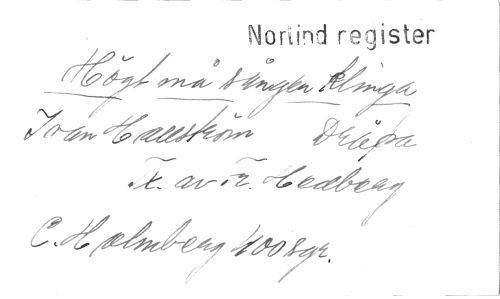 Norlind register
Högt må sången klinga
Ivan Hallström Dräpa
T. av Fr. Hedberg
C. Holmberg 400 sgr.